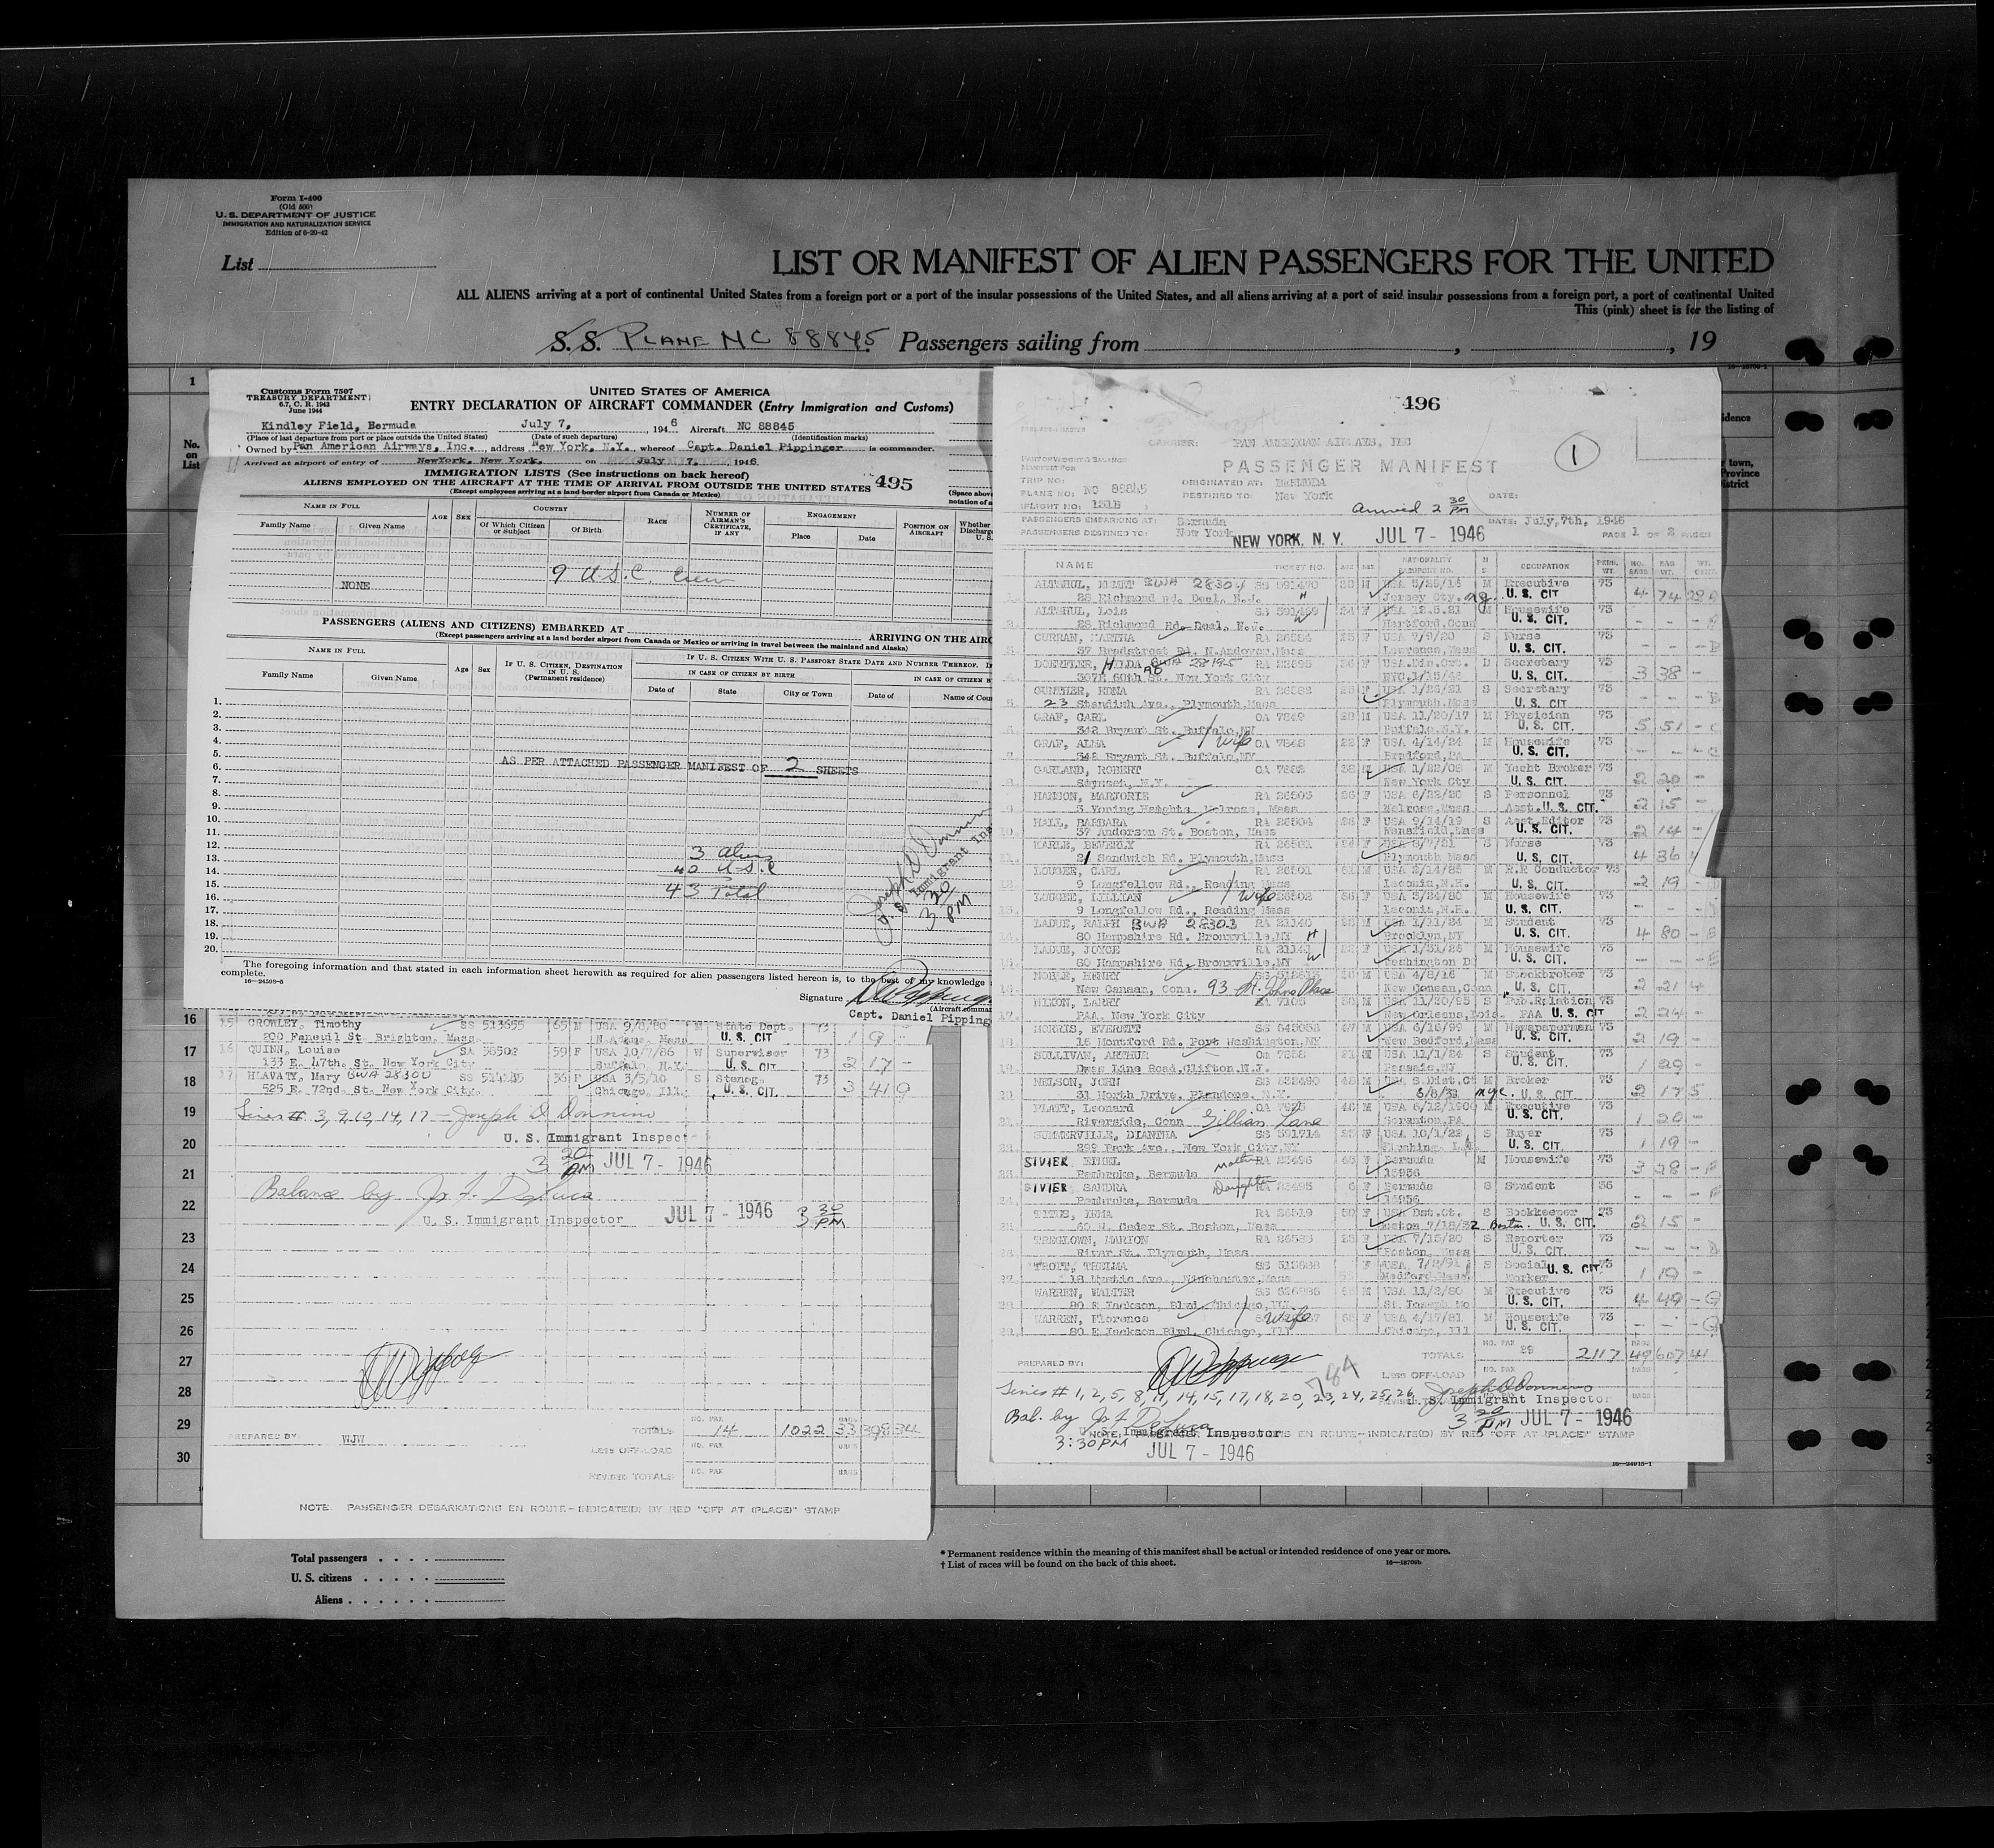 Form I-400
(Old 500)
U. S. DEPARTMENT OF JUSTICE
IMMIGRATION AND NATURALIZATION SERVICE
Edition of 6-20-42
List
LIST OR MANIFEST OF ALIEN PASSENGERS FOR THE UNITED
ALL ALIENS arriving at a port of continental United States from a foreign port or a port of the insular possessions of the United States, and all aliens arriving at a port of said insular possessions from a foreign port, a port of continental United
This (pink) sheet is for the listing of
S. S. PLANE NC 88845 Passengers sailing from , , 19
1
No. on List
Customs Form 7507
TREASURY DEPARTMENT
6.7, C. R. 1943
June 1944
UNITED STATES OF AMERICA
ENTRY DECLARATION OF AIRCRAFT COMMANDER (Entry Immigration and Customs)
Kindley Field, Bermuda July 7, 1946 Aircraft NC 88845
(Place of last departure from port or place outside the United States) (Date of such departure) (Identification marks)
Owned by Pan American Airways, Inc. address New York, N.Y. whereof Capt. Daniel Pippinger is commander.
Arrived at airport of entry of New York, New York. on July 7, 1946
IMMIGRATION LISTS (See instructions on back hereof)
ALIENS EMPLOYED ON THE AIRCRAFT AT THE TIME OF ARRIVAL FROM OUTSIDE THE UNITED STATES 495
(Except employees arriving at a land border airport from Canada or Mexico)
NAME IN FULL
Family Name Given Name
AGE SEX
COUNTRY
Of Which Citizen or Subject Of Birth
RACE
NUMBER OF AIRMAN'S CERTIFICATE, IF ANY
ENGAGEMENT
Place Date
POSITION ON AIRCRAFT
9 U.S.C. Crew
NONE
PASSENGERS (ALIENS AND CITIZENS) EMBARKED AT ARRIVING ON THE AIRC
(Except passengers arriving at a land border airport from Canada or Mexico or arriving in travel between the mainland and Alaska)
NAME IN FULL
Family Name Given Name
Age Sex
IF U. S. CITIZEN, DESTINATION IN U. S. (Permanent residence)
IF U. S. CITIZEN WITH U. S. PASSPORT STATE DATE AND NUMBER THEREOF.
IN CASE OF CITIZEN BY BIRTH
Date of State City or Town Date of Name of Coun
1.
2.
3.
4.
5.
6.
7.
8.
9.
10.
11.
12.
13.
14.
15.
16.
17.
18.
19.
20.
AS PER ATTACHED PASSENGER MANIFEST OF 2 SHEETS
3 Aliens
40 U.S.C
43 Total
3 30 PM
The foregoing information and that stated in each information sheet herewith as required for alien passengers listed hereon is, to the best of my knowledge
complete.
16—24598-5
Signature
Capt. Daniel Pipping
16
17
18
19
20
21
22
23
24
25
26
27
28
29
30
15 CROWLEY, Timothy SS 513655 65 M USA 9/8/80 M State Dept. 73
200 Faneuil St. Brighton, Mass. U. S. CIT 1 9
16 QUINN, Louise 59 F USA 10/7/86 W Supervisor 73
133 E. 47th. St. New York City Buffalo, N.Y. U. S. CIT. 2 17 -
17 HLAVATY, Mary BWA 28300 36 F USA 3/5/10 S Stenog. 73
525 E. 72nd. St. New York City. Chicago, Ill. U. S. CIT. 3 41 9
Lines # 3, 9, 10, 14, 17 - Joseph D Donnino
U. S. Immigrant Inspector
3 30 PM JUL 7 - 1946
Balance by J. F. DeLuca
U. S. Immigrant Inspector JUL 7 - 1946 3 30 PM
TOTALS NO. PAX 14 1022 33 398 34
PREPARED BY: WJW
LESS OFF-LOAD NO. PAX BAGS
REVISED TOTALS NO. PAX BAGS
NOTE: PASSENGER DEBARKATIONS EN ROUTE-INDICATE(D) BY RED "OFF AT (PLACE)" STAMP
496
CARRIER: PAN AMERICAN AIRWAYS, INC
1
PASSENGER MANIFEST
TRIP NO:
ORIGINATED AT: BERMUDA
PLANE NO: NC 88845
DESTINED TO: New York DATE:
FLIGHT NO: 131B
Arrived 2 30 PM
PASSENGERS EMBARKING AT: Bermuda DATE: July, 7th, 1946
PASSENGERS DESTINED TO: New York NEW YORK, N. Y. JUL 7 - 1946 PAGE 1 OF 2 PAGES
NAME TICKET NO. AGE SEX NATIONALITY PASSPORT NO. OCCUPATION PERS. WT. NO. BAGS BAG. WT.
28 Richmond Rd. Deal, N.J. Jersey Cty. U. S. CIT 4 74
ALTSHUL, Lois USA 12.5.21 M Housewife 73
28 Richmond Rd. Deal, N.J. Hartford, Conn U. S. CIT.
CURRAN, MARTHA RA 26584 USA 7/9/20 S Nurse 73
57 Bradstreet Rd. N. Andover, Mass Lawrence, Mass U. S. CIT.
307E 60th St. New York City U. S. CIT. 3 38 -
GUNTHER, EDNA USA 1/26/21 S Secretary 73
23 Standish Ave., Plymouth, Mass Plymouth, Mass U. S. CIT
GRAF, CARL OA 7849 28 M USA 11/20/17 M Physician 73
342 Bryant St. Buffalo, NY Buffalo, N.Y. U. S. CIT. 5 51
GRAF, ALMA Wife 22 F USA 4/14/24 M Housewife 73
342 Bryant St. Buffalo, NY Bradford, PA U. S. CIT.
GARLAND, ROBERT M Yacht Broker 73
New York Cty U. S. CIT. 2 20 -
HANSON, MARJORIE RA 26503 USA 6/22/20 S Personnel 73
Melrose, Mass Asst. U. S. CIT. 2 15 -
HALE, BARBARA RA 26504 26 F USA 9/14/19 S Asst Editor 73
37 Anderson St. Boston, Mass Mansfield, Mass U. S. CIT. 2 14 -
KARLE, BEVERLY S Nurse 73
21 Sandwich Rd. Plymouth, Mass Plymouth Mass U. S. CIT. 4 36
LOUGEE, CARL RA 26501 61 M USA 2/14/85 M R.R Conductor 73
9 Longfellow Rd., Reading Mass Laconia, N.H. U. S. CIT. 2 19 -
LOUGEE, LILLIAN Wife 26502 M Housewife 73
9 Longfellow Rd., Reading Mass Laconia, N.H. U. S. CIT.
LADUE, RALPH BWA 28303 RA 21140 USA 1/11/24 M Student 73
80 Hampshire Rd. Bronxville, NY Brooklyn, NY U. S. CIT. 4 80 -
LADUE, JOYCE RA 21141 M Housewife 73
80 Hampshire Rd. Bronxville, NY Washington D U. S. CIT.
NOBLE, HENRY USA 4/8/16 M Stockbroker 73
New Canaan, Conn. 93 St. Johns Place New Canaan, Conn U. S. CIT. 2 21 4
NIXON, LARRY USA 11/20/95 S Pub. Relation 73
PAA. New York City New Orleans, Lois. PAA U. S. CIT 2 24 -
NORRIS, EVERETT 47 M USA 6/16/99 M Newspaperman 73
16 Montford Rd. Port Washington, NY New Bedford, Mass U. S. CIT. 2 19 -
SULLIVAN, ARTHUR 21 M USA 11/1/24 S Student 73
Dwas Line Road, Clifton, N.J. U. S. CIT. 1 29 -
NELSON, JOHN M Broker 73
31 North Drive, Plandome, N.Y. 6/8/33 nyc. U. S. CIT 2 17 5
PLATT, Leonard M Executive 73
Riverside, Conn Gillian Lane Scranton, PA U. S. CIT. 1 20 -
SUMMERVILLE, DIANTHA SS 591714 USA 10/1/22 S Buyer 73
299 Park Ave., New York City, NY U. S. CIT. 1 19 -
SIVIER, ETHEL Mother RA 23496 F Bermuda M Housewife 73
Pembroke, Bermuda 15956 3 28 -
SIVIER SANDRA Daughter RA 23495 6 F Bermuda S Student 36
Pembroke, Bermuda 15956
TITUS, IRMA RA 26519 S Bookkeeper 73
60 N. Cedar St. Boston, Mass Boston 7/18/32 Boston. U. S. CIT. 2 15 -
TREGLOWN, MARION RA 26585 25 F USA 7/15/20 S Reporter 73
River St. Plymouth, Mass Boston, Mass U. S. CIT.
TROTT, THELMA F USA S Social 73
18 Mystic Ave., Winchester, Mass Medford Mass. Worker U. S. CIT 1 19 -
WARREN, WALTER M USA 11/2/80 M Executive 73
80 E Jackson, Blvd. Chicago, Ill St. Joseph Mo U. S. CIT. 4 49 -
WARREN, Florence Wife 65 F USA 4/17/81 M Housewife 73
80 E Jackson Blvd. Chicago, Ill Chicago, Ill U. S. CIT.
PREPARED BY: TOTALS NO. PAX 29 2117 49 607 41
784
LESS OFF-LOAD
Lines # 1, 2, 5, 8, 11, 14, 15, 17, 18, 20, 23, 24, 25, 26, Joseph D Donnino
U. S. Immigrant Inspector
3 30 PM JUL 7 - 1946
Bal. by J. F DeLuca
U. S. Immigrant Inspector
3:30 PM
JUL 7 - 1946
EN ROUTE-INDICATE(D) BY RED "OFF AT (PLACE)" STAMP
16—24915-1
Total passengers
U. S. citizens
Aliens
* Permanent residence within the meaning of this manifest shall be actual or intended residence of one year or more.
† List of races will be found on the back of this sheet.